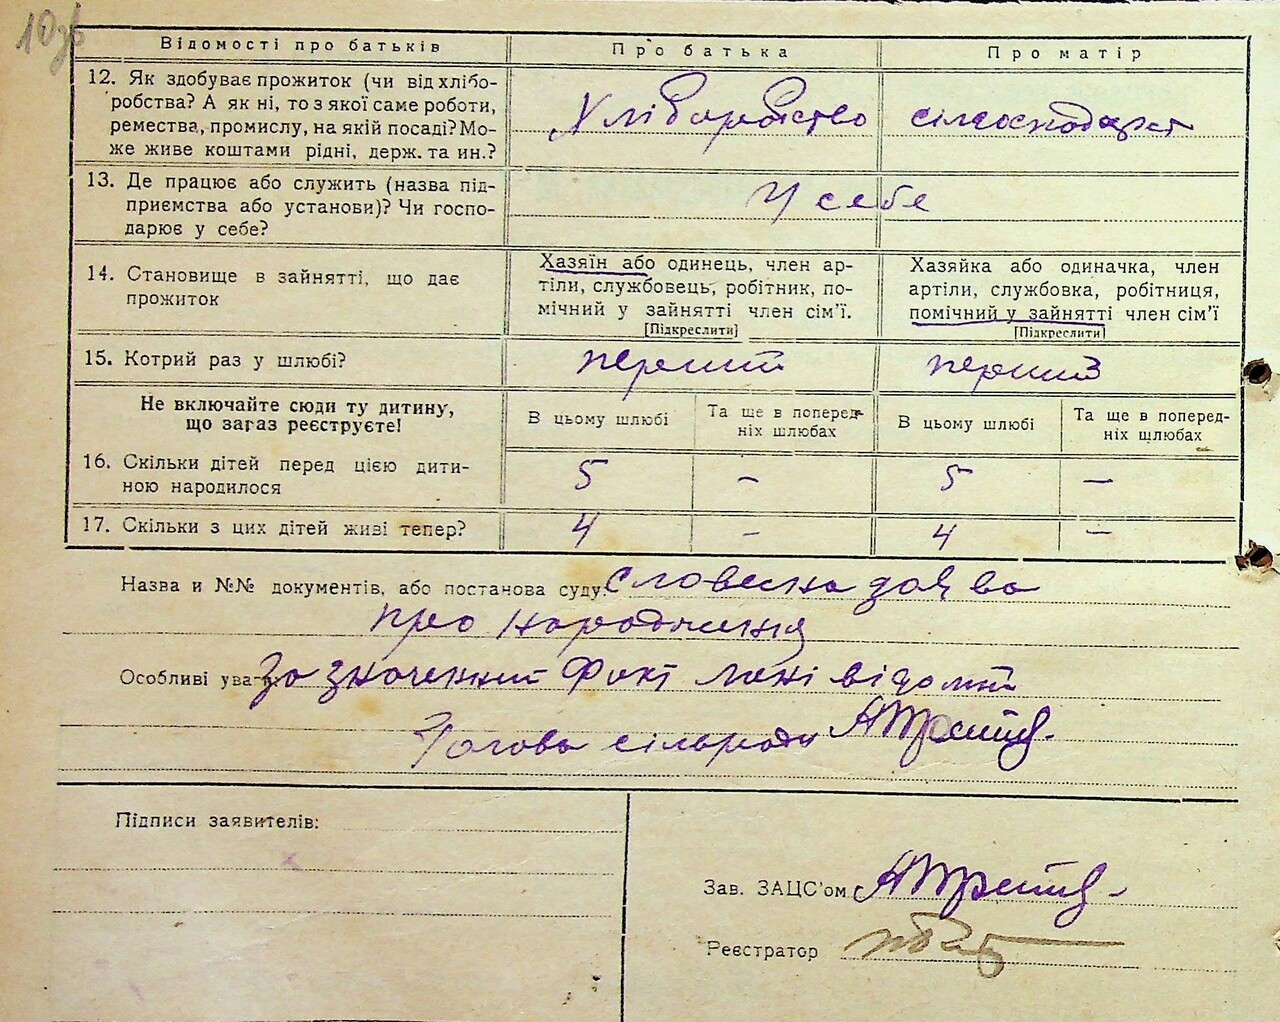 10зв
Відомості про батьків
Про батька
Про матір
12. Як здобуває прожиток (чи від хлібо-
робства? А як ні, то з якої саме роботи,
ремества, промислу, на якій посаді? Мо-
же живе коштами рідні, держ. та ин.?
Хліборобство
сільгосподарст
13. Де працює або служить (назва під-
приємства або установи)? Чи госпо-
дарює у себе?
У себе
14. Становище в зайнятті, що дає
прожиток
Хазяїн або одинець, член ар-
тіли, службовець, робітник, по-
мічний у зайнятті член сім’ї.
[Підкреслити]
Хазяйка або одиначка, член
артіли, службовка, робітниця,
помічний у зайнятті член сім’ї
[Підкреслити]
15. Котрий раз у шлюбі?
перший
перший
Не включайте сюди ту дитину,
що загаз реєструєте!
В цьому шлюбі
Та ще в поперед-
ніх шлюбах
В цьому шлюбі
Та ще в поперед-
ніх шлюбах
16. Скільки дітей перед цією дити-
ною народилося
5 - 5 -
17. Скільки з цих дітей живі тепер?
4 - 4 -
Назва и №№ документів, або постанова суду: Словесна заява
про народження
Особливі уваги: Зазначений факт мені відомий
Голова сільради
Підписи заявителів:
Зав. ЗАЦС’ом
Реєстратор